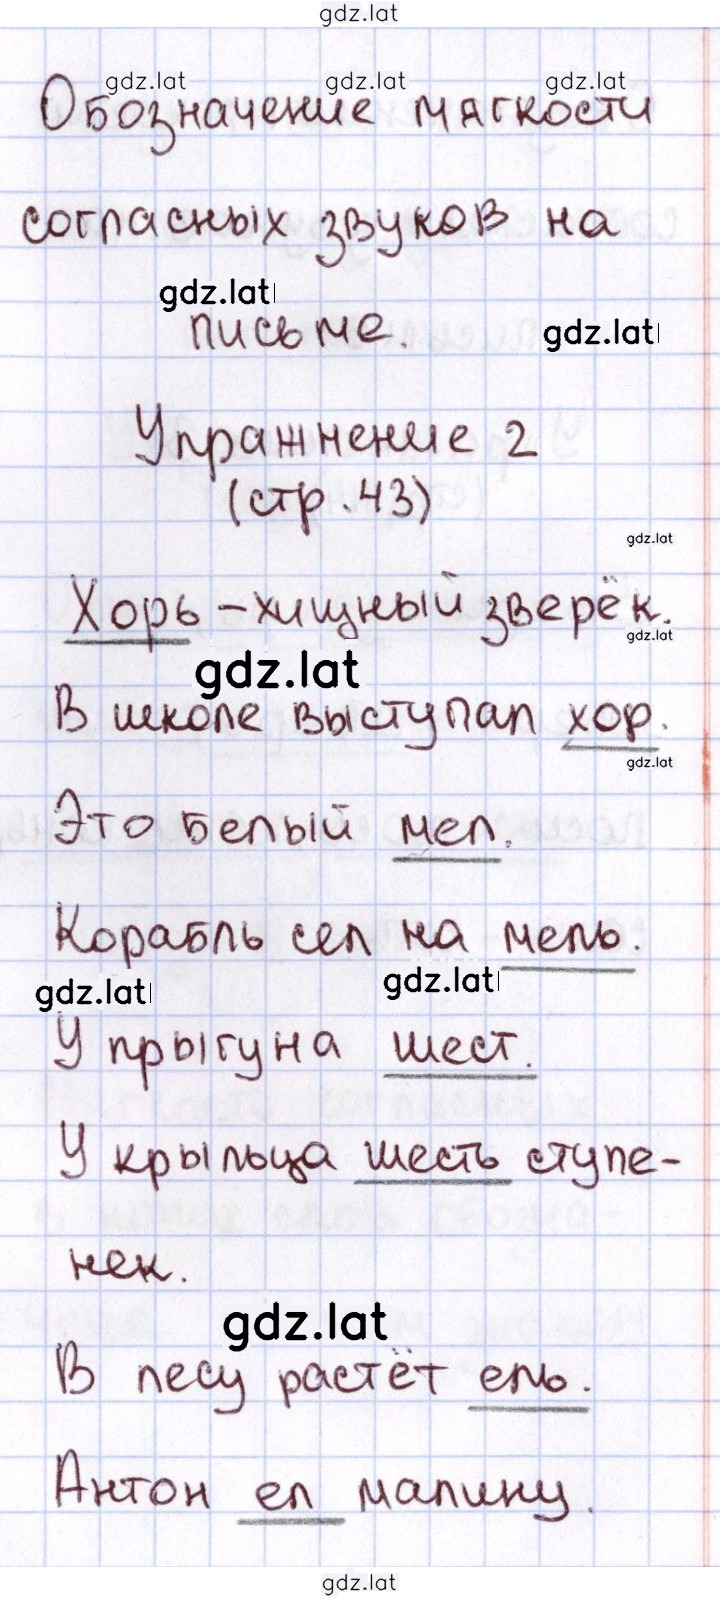 gdz.lat
gdz.lat gdz.lat gdz.lat
Обозначение мягкости
согласных звуков на
gdz.lat
письме. gdz.lat
Упражнение 2
(стр.43)
gdz.lat
Хорь – хищный зверёк.
gdz.lat
gdz.lat
В школе выступал хор.
gdz.lat
Это белый мел.
Корабль сел на мель.
gdz.lat gdz.lat
У прыгуна шест.
У крыльца шесть ступе-
нек.
gdz.lat
В лесу растёт ель.
Антон ел малину.
gdz.lat